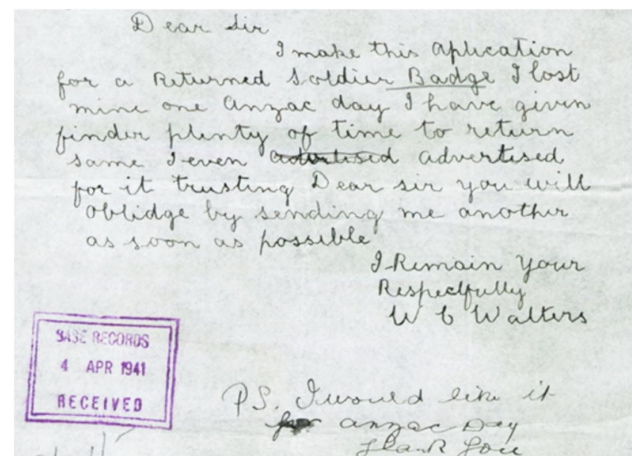 Dear Sir
I make this Aplication
for a Returned Soldier Badge I lost
mine one Anzac day I have given
finder plenty of time to return
same I even advertised advertised
for it trusting Dear sir you will
Oblidge by sending me another
as soon as possible
I Remain Your
Respectfully
W C Walters
BASE RECORDS
4 APR 1941
RECEIVED
P.S. I would like it
for Anzac Day
Thank You